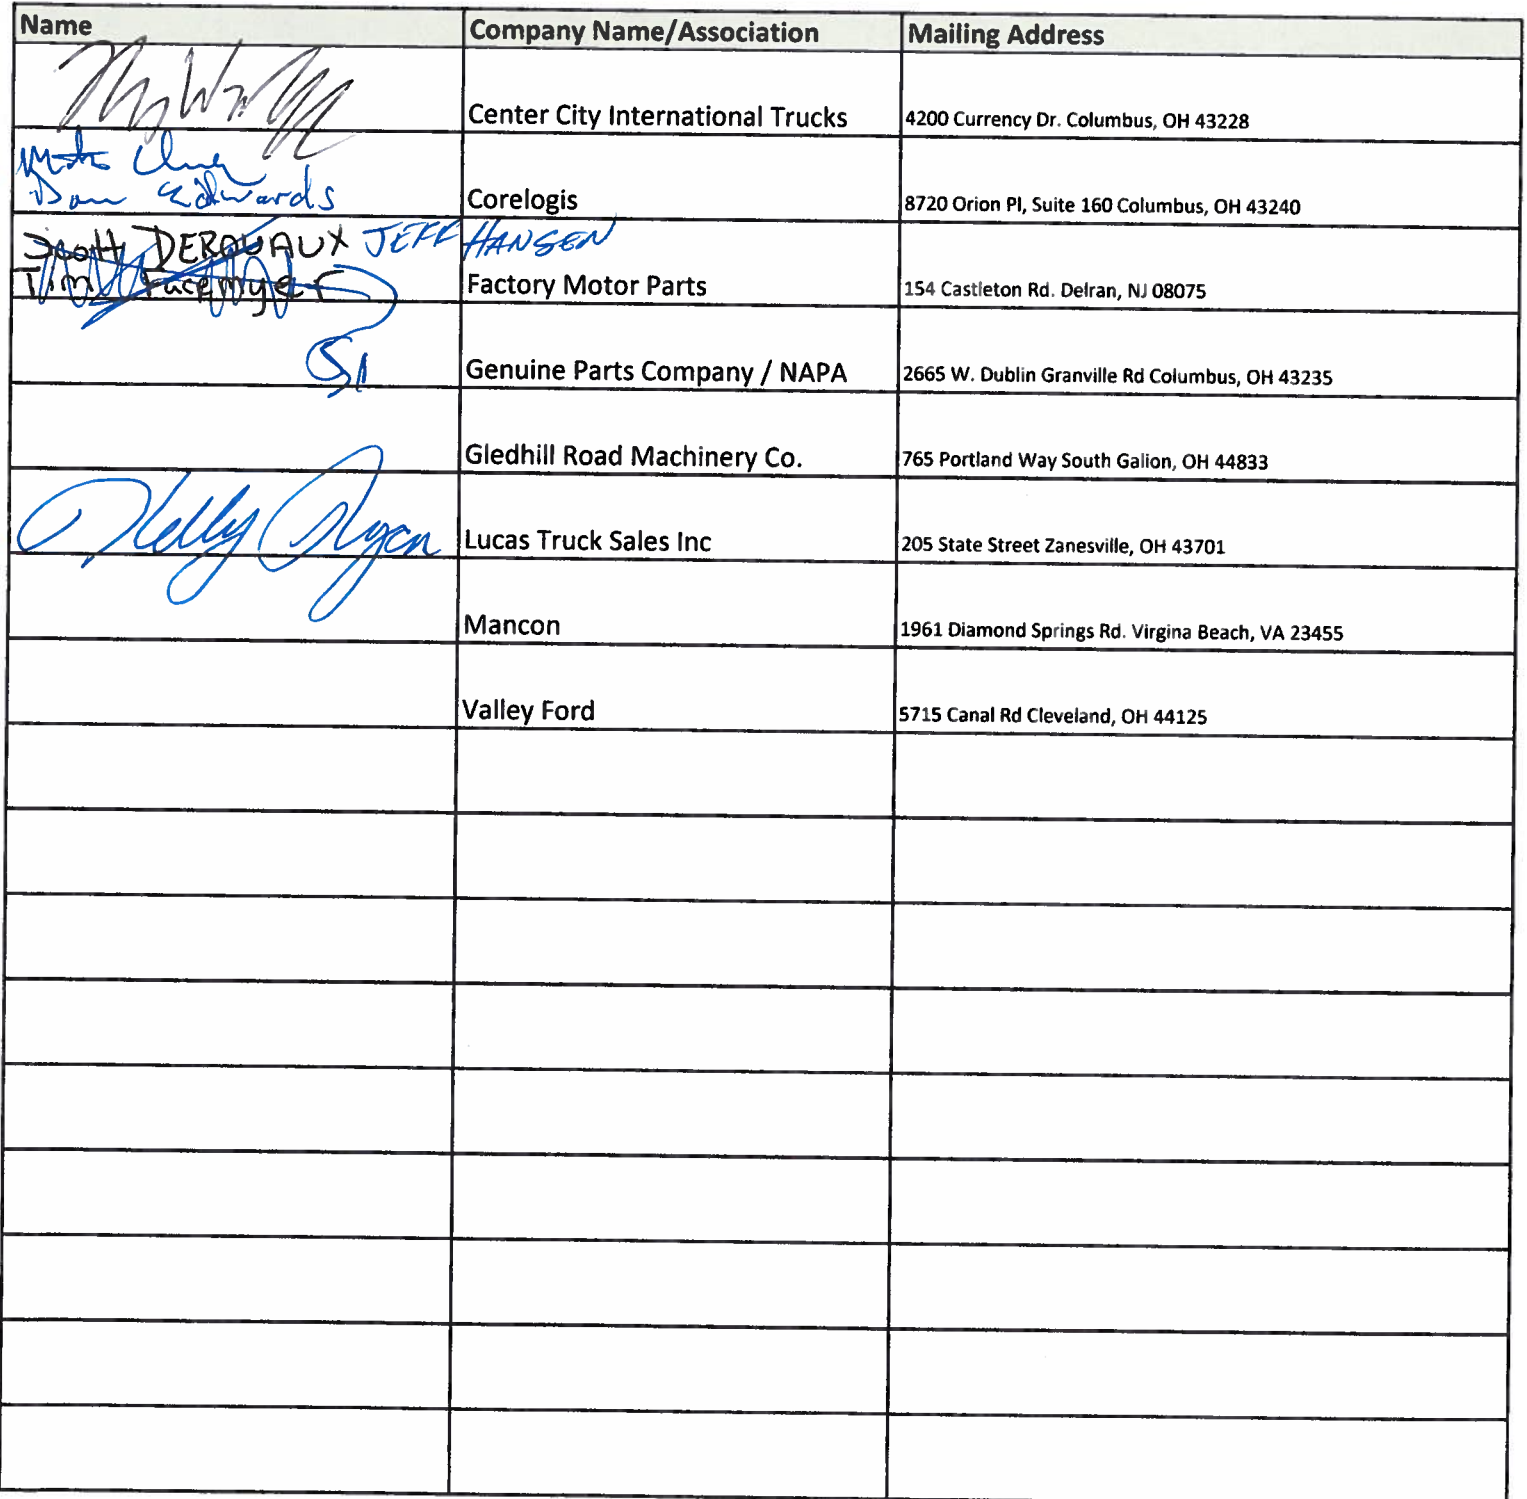 Name Company Name/Association Mailing Address
Center City International Trucks 4200 Currency Dr. Columbus, OH 43228
Dan Edwards Corelogis 8720 Orion Pl, Suite 160 Columbus, OH 43240
Scott DEROUAUX JEFF HANSEN
Tim Facemyer Factory Motor Parts 154 Castleton Rd. Delran, NJ 08075
Genuine Parts Company / NAPA 2665 W. Dublin Granville Rd Columbus, OH 43235
Gledhill Road Machinery Co. 765 Portland Way South Galion, OH 44833
Kelly Ryan Lucas Truck Sales Inc 205 State Street Zanesville, OH 43701
Mancon 1961 Diamond Springs Rd. Virgina Beach, VA 23455
Valley Ford 5715 Canal Rd Cleveland, OH 44125